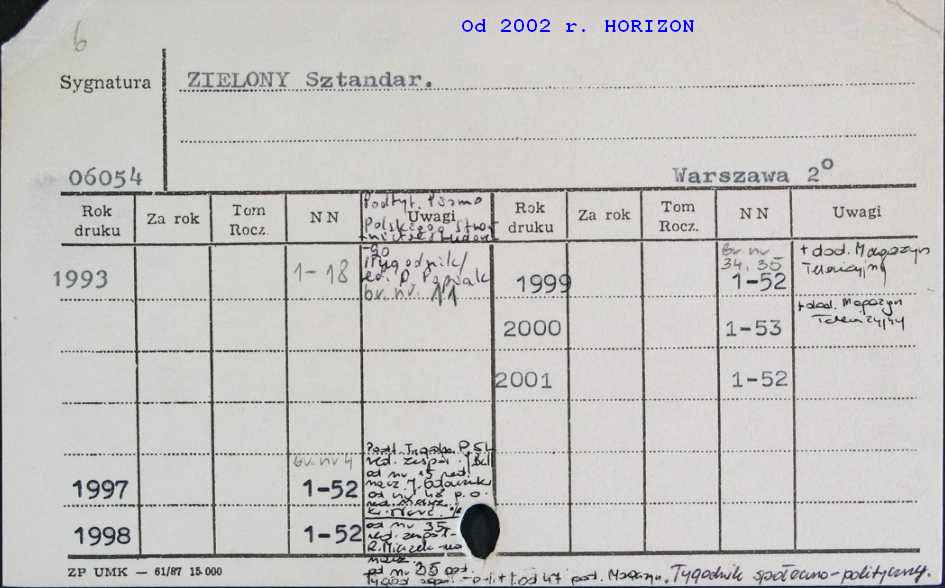 Od 2002 r. HORIZON
6
Sygnatura
ZIELONY Sztandar.
06054
Warszawa 2°
Rok druku
Za rok
Tom Rocz.
NN
Uwagi
Rok druku
Za rok
Tom Rocz.
NN
Uwagi
Podtyt. Pismo
Polskiego
1993
1-18
-go
/tygodnik/
br. nr. 11
1997
br. nr 4
1-52
red. zespół.
od nr 15 red.
nacz.
od nr 48 p.o.
1998
1-52
od nr 35
red. zespół-
1999
br. nr
34, 35
1-52
+ dod. Magazyn
Telewizyjny
2000
1-53
+ dod. Magazyn
Telewizyjny
2001
1-52
ZP UMK — 61/87 15.000
od nr 47 pod. Magazyn. Tygodnik społeczno-polityczny.